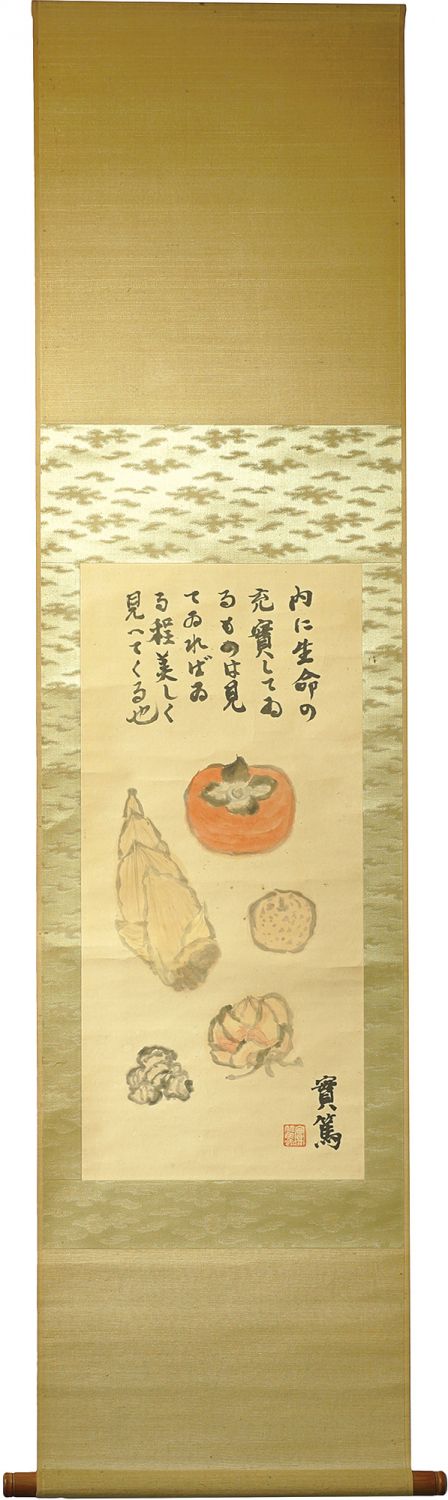 内に生命の
充實してゐ
るものは見
てゐればゐ
る程美しく
見へてくる也
實篤